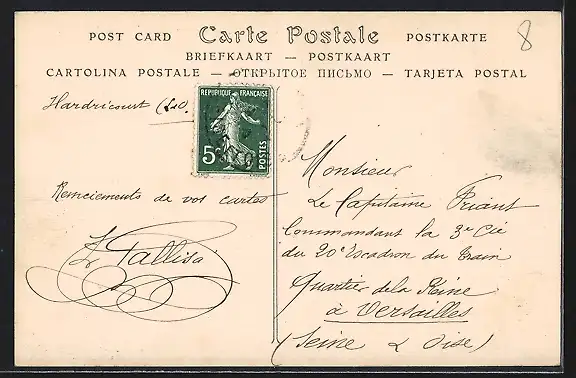 POST CARD Carte Postale POSTKARTE
BRIEFKAART — POSTKAART
CARTOLINA POSTALE — ОТКРЫТОЕ ПИСЬМО — TARJETA POSTAL
8
Hardricourt (S&O)
REPUBLIQUE FRANÇAISE
5c
POSTES
Remerciements de vos cartes
Monsieur
Le Capitaine Friant
Commandant la 3e Cie
du 20e Escadron du Train
Quartier de la Reine
à Versailles
(Seine & Oise)